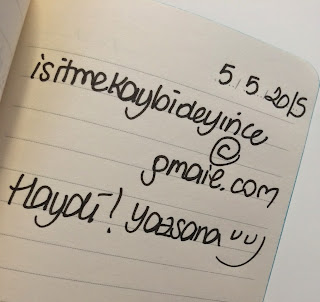 5.5.2015
isitmekaybideyince
@
gmail.com
Haydi! yazsana